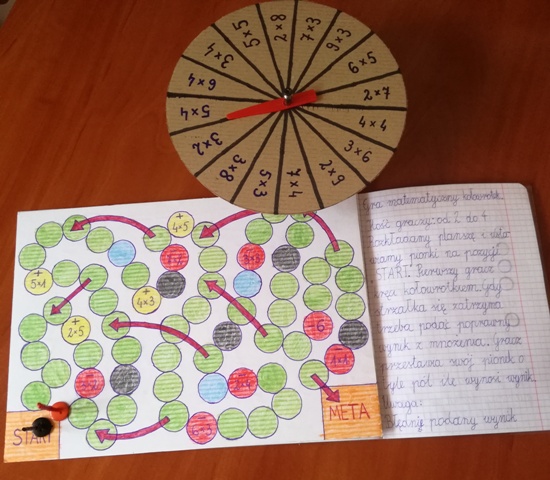 2×8
7×3
9×3
9×5
2×7
4×4
3×6
5×2
7×4
5×3
3×8
3×2
5×4
6×4
3×4
5×5
+
4×5
+
5×1
+
4×3
+
2×5
START
META
Gra matematyczny kołowrotek.
Ilość graczy: od 2 do 4
Rozkładamy planszę i usta-
wiamy pionki na pozycji
START. Pierwszy gracz
kręci kołowrotkiem, gdy
strzałka się zatrzyma
trzeba podać poprawny
wynik z mnożenia. Gracz
przestawia swój pionek o
tyle pól ile wynosi wynik.
Uwaga:
błędnie podany wynik